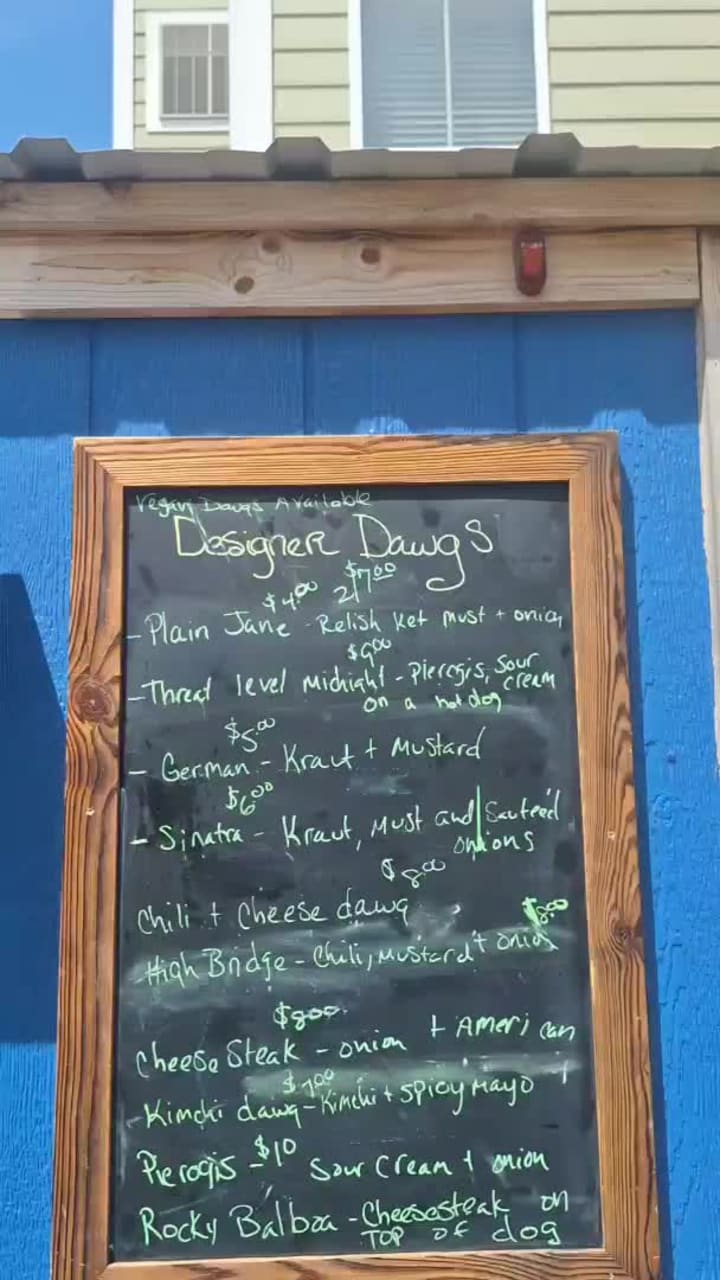 Vegan Dawgs Available
Designer Dawgs
$4.00 2/$7.00
- Plain Jane - Relish Ket must + onion
$9.00
- Threat level Midnight - Pierogis, Sour cream
on a hot dog
$5.00
- German - Kraut + Mustard
$6.00
- Sinatra - Kraut, Must and Sauteéd
onions
$8.00
Chili + Cheese dawg
$8.00
- High Bridge - Chili, Mustard + onion
$8.00
Cheese Steak - onion + American
$7.00
- Kimchi dawg - Kimchi + spicy mayo
Pierogis - $10 Sour Cream + onion
Rocky Balboa - Cheesesteak on
TOP of dog